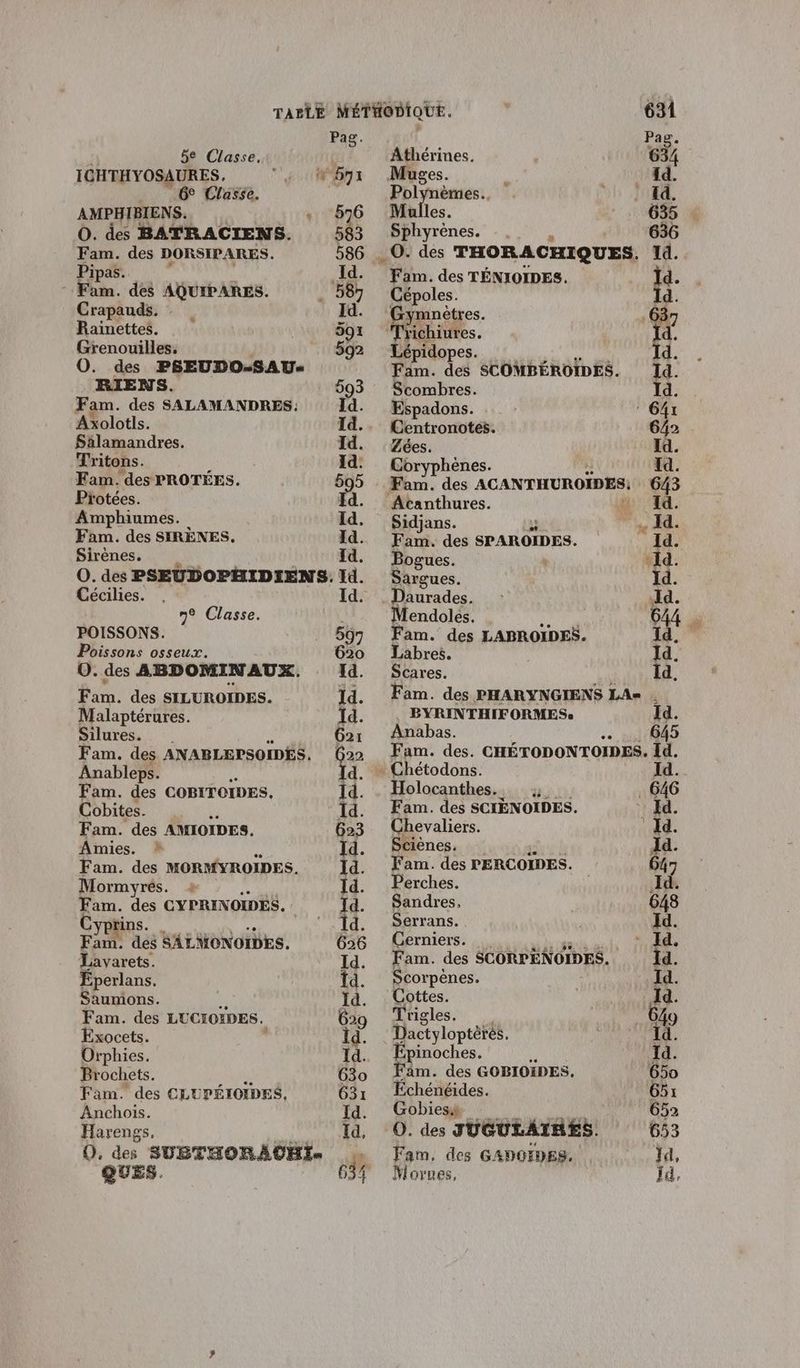 TABLE MÉTHODIQUE. 631
Pag.
5e Classe.
ICHTHYOSAURES. 571
6e Classe.
AMPHIBIENS. 576
O. des BATRACIENS. 583
Fam. des DORSIPARES. 586
Pipas. Id.
Fam. des AQUIPARES. 587
Crapauds. Id.
Rainettes. 591
Grenouilles. 592
O. des PSEUDO-SAU-
RIENS. 593
Fam. des SALAMANDRES. Id.
Axolotls. Id.
Salamandres. Id.
Tritons. Id.
Fam. des PROTÉES. 595
Protées. Id.
Amphiumes. Id.
Fam. des SIRÈNES. Id.
Sirènes. Id.
O. des PSEUDOPHIDIENS. Id.
Cécilies. Id.
7e Classe.
POISSONS. 597
Poissons osseux. 620
O. des ABDOMINAUX. Id.
Fam. des SILUROÏDES. Id.
Malaptérures. Id.
Silures. 621
Fam. des ANABLEPSOÏDES. 622
Anableps. Id.
Fam. des COBITOÏDES. Id.
Cobites. Id.
Fam. des AMIOÏDES. 623
Amies. Id.
Fam. des MORMYROÏDES. Id.
Mormyrés. Id.
Fam. des CYPRINOÏDES. Id.
Cyprins. Id.
Fam. des SALMONOÏDES. 626
Lavarets. Id.
Éperlans. Id.
Saumons. Id.
Fam. des LUCIOÏDES. 629
Exocets. Id.
Orphies. Id.
Brochets. 630
Fam. des CLUPÉIOÏDES. 631
Anchois. Id.
Harengs. Id.
O. des SUBTHORACHI-
QUES. 634
Pag.
Athérines. 634
Muges. Id.
Polynèmes. Id.
Mulles. 635
Sphyrènes. 636
O. des THORACHIQUES. Id.
Fam. des TÉNIOÏDES. Id.
Cépoles. Id.
Gymnètres. 637
Trichiures. Id.
Lépidopes. Id.
Fam. des SCOMBÉROÏDES. Id.
Scombres. Id.
Espadons. 641
Centronotes. 642
Zées. Id.
Coryphènes. Id.
Fam. des ACANTHUROÏDES. 643
Acanthures. Id.
Sidjans. Id.
Fam. des SPAROÏDES. Id.
Bogues. Id.
Sargues. Id.
Daurades. Id.
Mendoles. 644
Fam. des LABROÏDES. Id.
Labres. Id.
Scares. Id.
Fam. des PHARYNGIENS LA-
BYRINTHIFORMES. Id.
Anabas. 645
Fam. des. CHÉTODONTOÏDES. Id.
Chétodons. Id.
Holocanthes. 646
Fam. des SCIÈNOÏDES. Id.
Chevaliers. Id.
Sciènes. Id.
Fam. des PERCOÏDES. 647
Perches. Id.
Sandres. 648
Serrans. Id.
Cerniers. Id.
Fam. des SCORPÈNOÏDES. Id.
Scorpènes. Id.
Cottes. Id.
Trigles. 649
Dactyloptères. Id.
Épinoches. Id.
Fam. des GOBIOÏDES. 650
Échénéides. 651
Gobies. 652
O. des JUGULAIRES. 653
Fam. des GADOÏDES. Id.
Morues. Id.